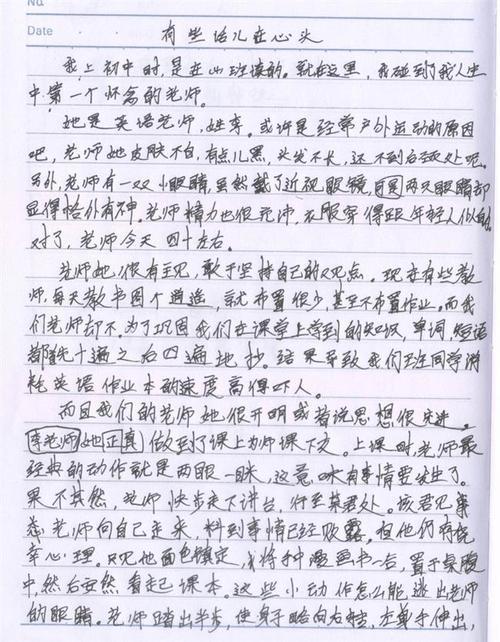 No.
Date
有些话儿在心头
我上初中时,是在山班读的。就在这里,我碰到了我人生
中第一个怀念的老师。
她是英语老师,姓李。或许是经常户外运动的原因
吧,老师她皮肤不白,有点儿黑,头发不长,还不到后颈处呢。
另外,老师有一双小眼睛,虽然戴了近视眼镜,两只眼睛却
显得格外有神。老师精力也很充沛,衣服穿得跟年轻人似的
对了,老师今天四十左右。
老师她很有主见,敢于坚持自己的观点。现在有些教
师,每天教书图个逍遥,就布置很少,甚至不布置作业。而我
们老师却不。为了巩固我们在课堂上学到的知识,单词,短语
都先十遍之后四遍地抄。结果导致我们班同学消
耗英语作业本的速度高得吓人。
而且我们的老师她很开明或者说思想很先进。
李老师她正真做到了课上为师课下友。上课时,老师最
经典的动作就是两眼一眯,这意味有事情要发生了。
果不其然,老师快步走下讲台,行至某君处。该君见
老师向自己走来,料到事情已经败露。但他们有侥
幸心理。只见他面色镇定,将手中漫画书一合,置于桌腹
中,然后安然看起课本。这些小动作怎么能逃出老师
的眼睛。老师踏出半步,使身子略向右转,左单手伸出,